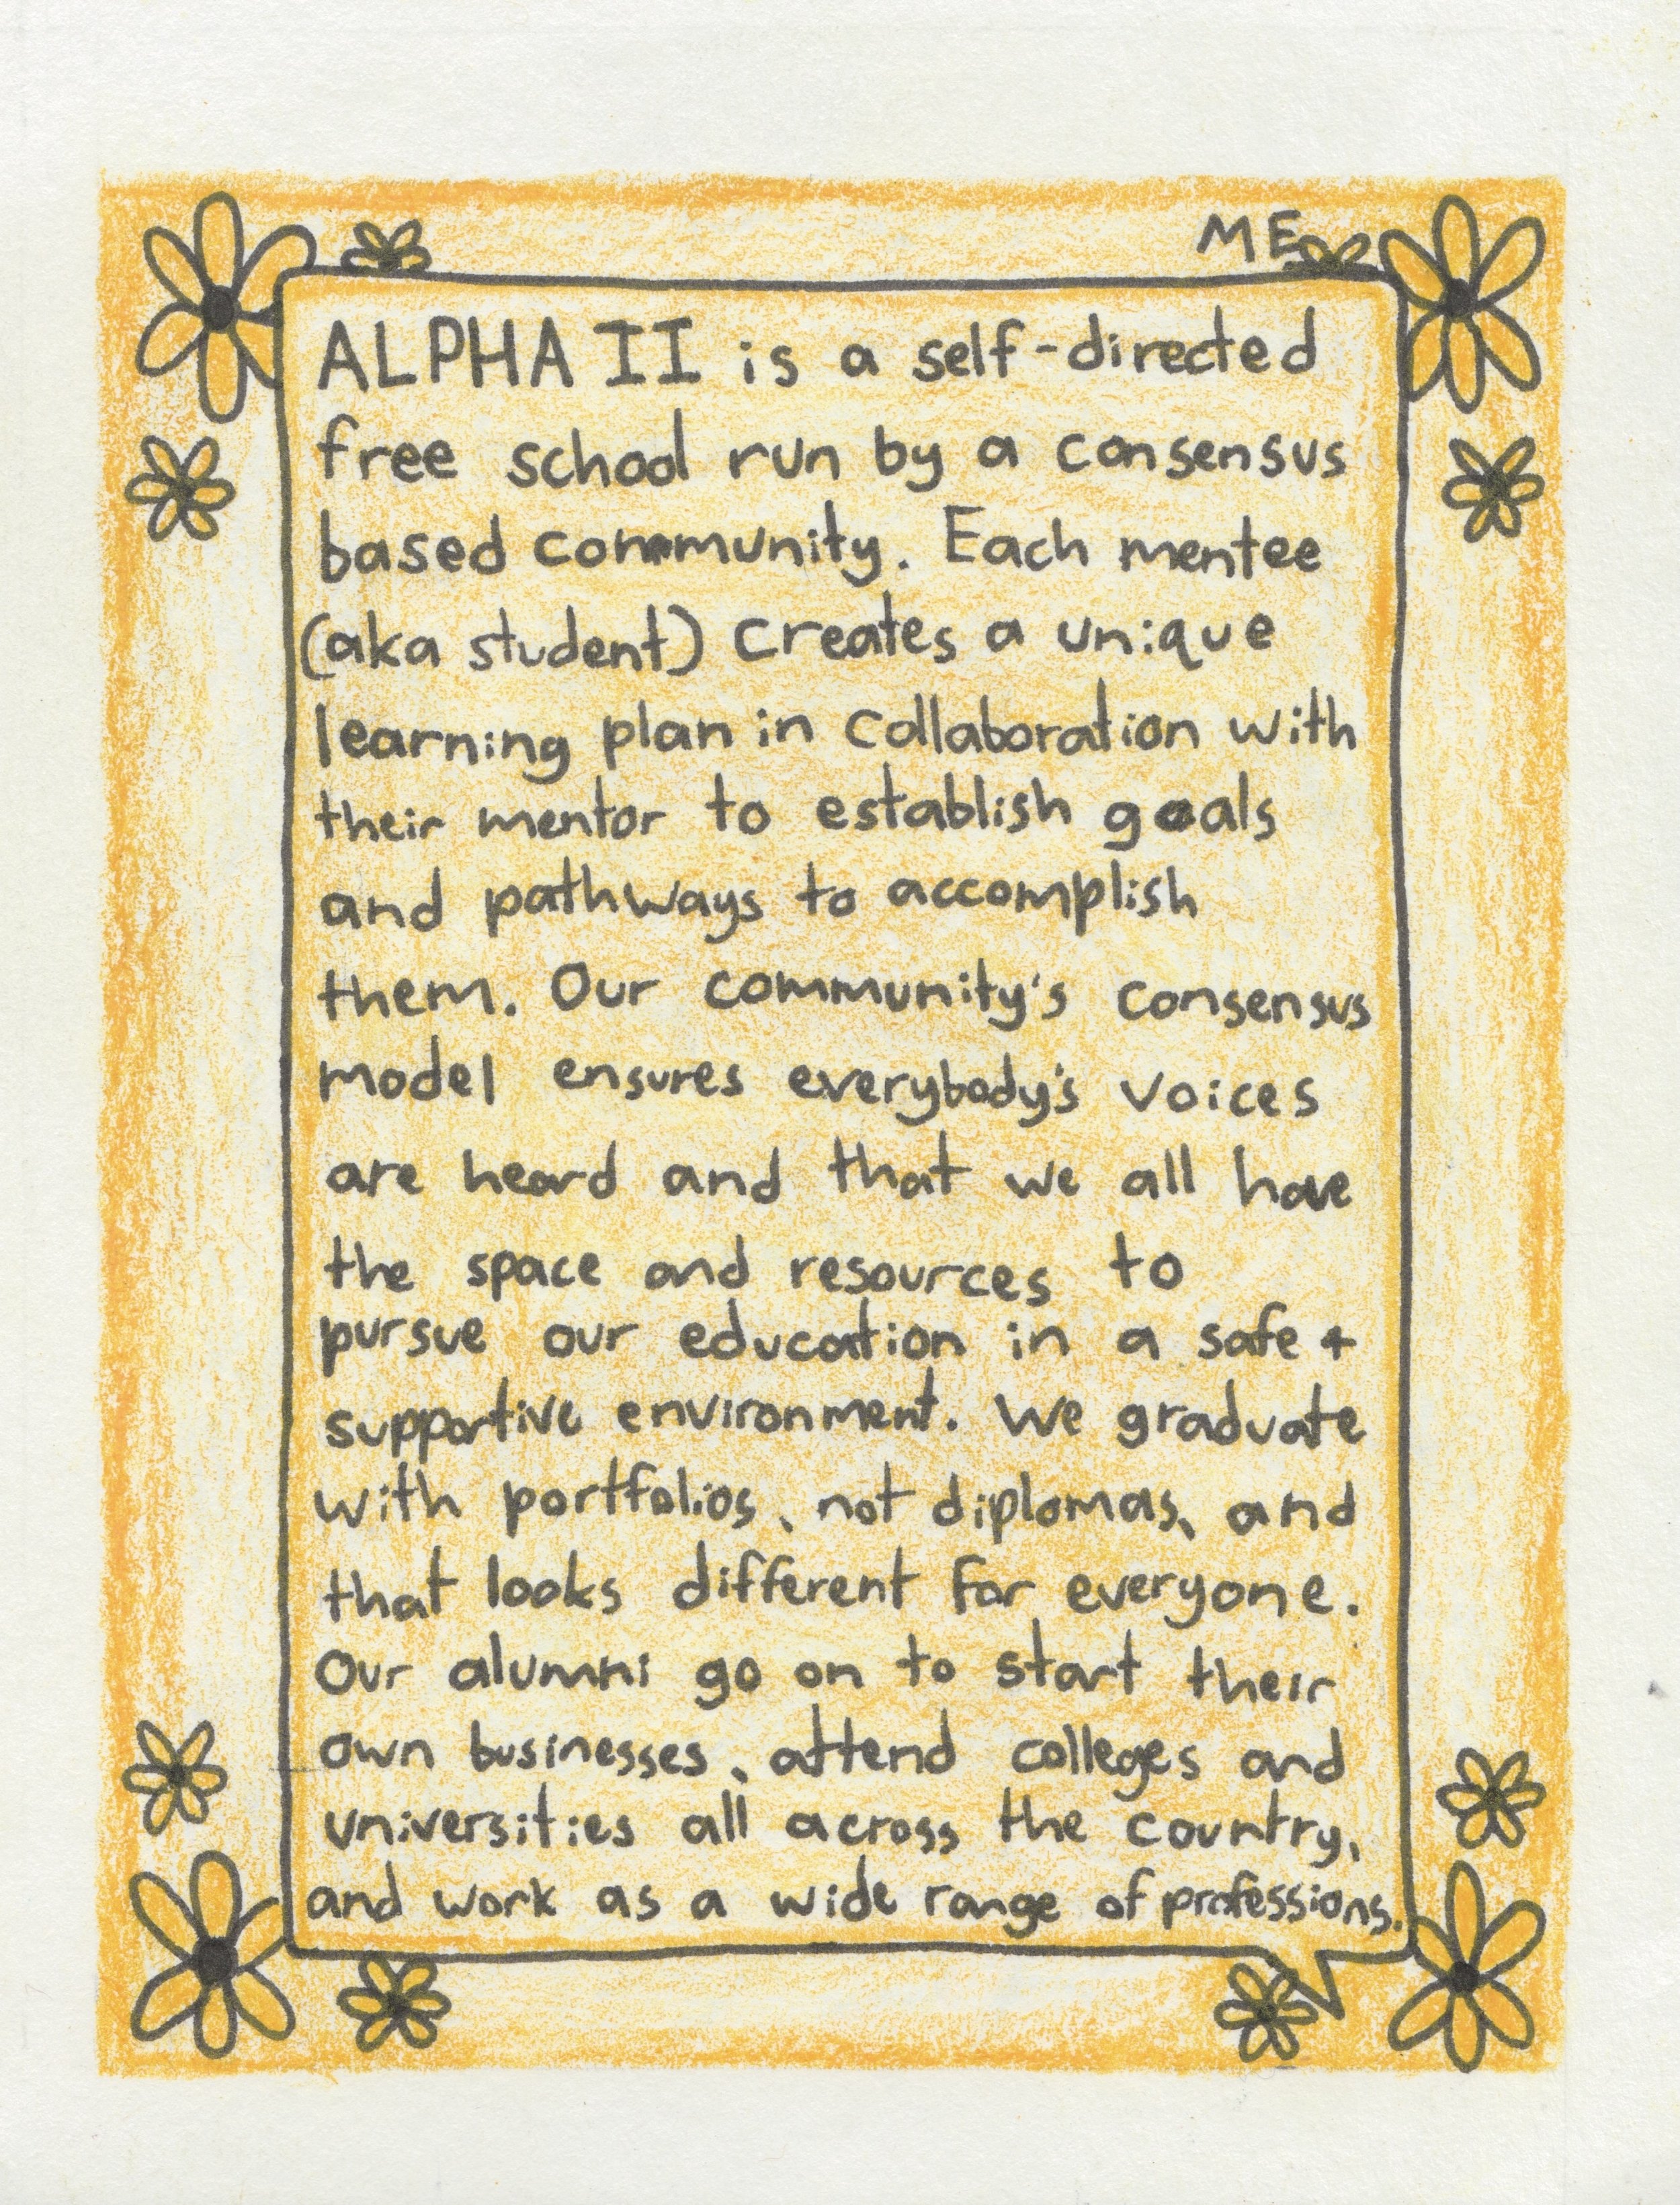 ME
ALPHA II is a self-directed
free school run by a consensus
based community. Each mentee
(aka student) creates a unique
learning plan in collaboration with
their mentor to establish goals
and pathways to accomplish
them. Our community's consensus
model ensures everybody's voices
are heard and that we all have
the space and resources to
pursue our education in a safe +
supportive environment. We graduate
with portfolios, not diplomas, and
that looks different for everyone.
Our alumni go on to start their
own businesses, attend colleges and
universities all across the country,
and work as a wide range of professions.